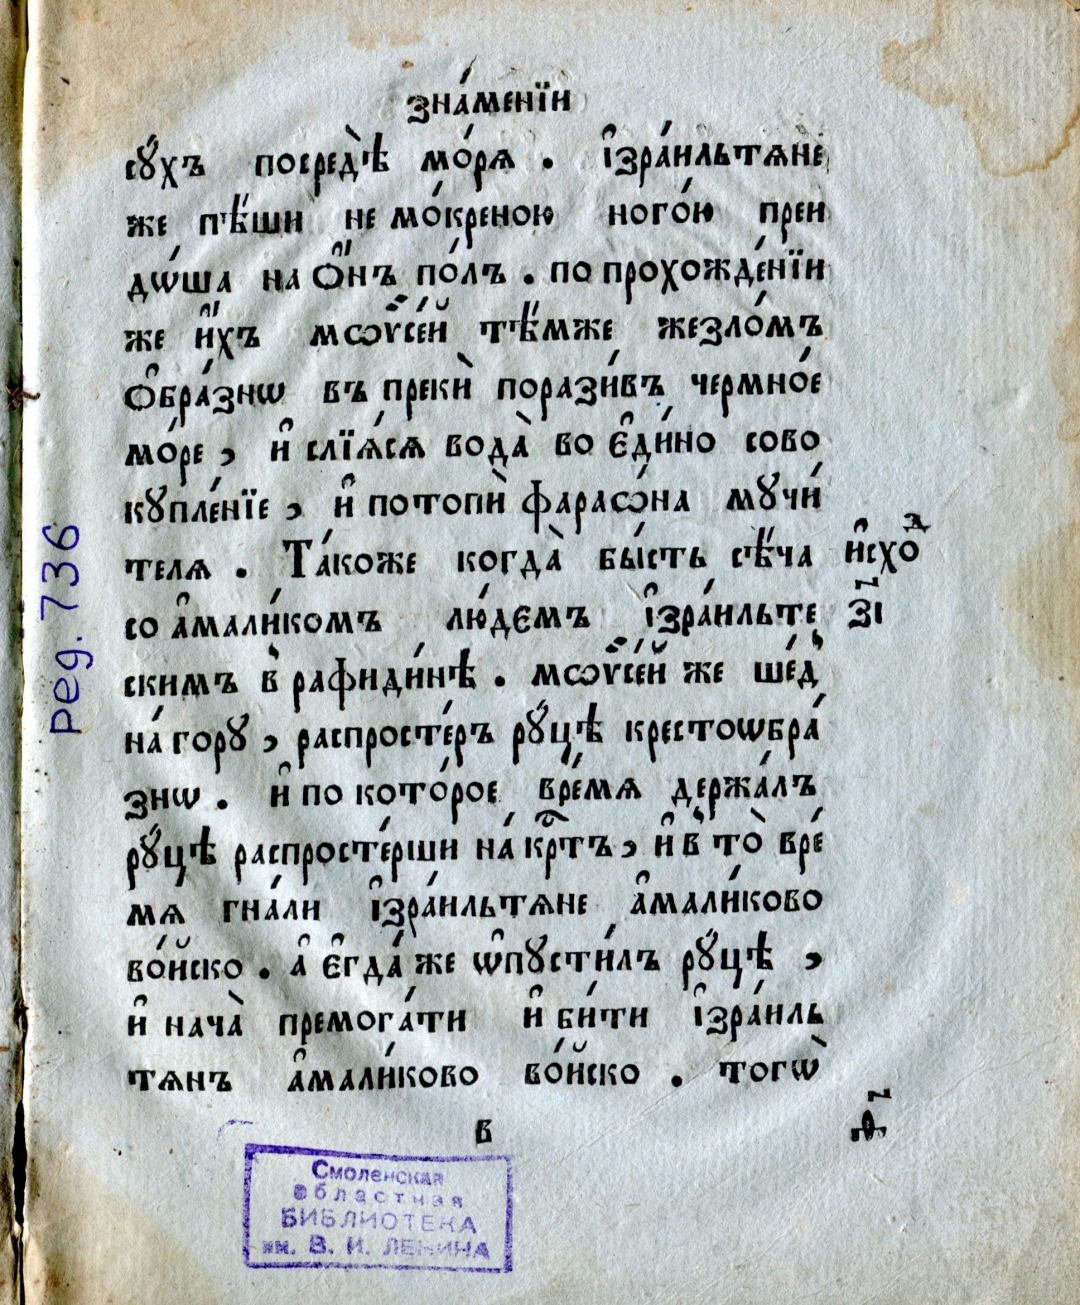 зна́менїи
сꙋ́хъ посредѣ̀ мо́рѧ . і҆зра́ильтѧне
же пѣ́ши не мо́креною ного́ю преи
дѡ́ша на ѻ҆́нъ по́лъ . по прохожде́нїи
же и҆́хъ мѡѷсе́й тѣ́мже жезло́мъ
ѻ҆бра́знѡ въ прекѝ порази́въ че́рмное
мо́ре , и҆ слїѧ́сѧ вода̀ во є҆ди́но сово
кꙋпле́нїе , и҆ потопѝ фараѡ́на мꙋчи́
телѧ . Та́коже когда̀ бы́сть сѣ́ча
со а҆мали́комъ лю́дємъ і҆зра́ильте
скимъ в̾ рафиди́нѣ . мѡѷсе́й же ше́д̾
на́ горꙋ , распросте́ръ рꙋ́цѣ крестоѡбра́
знѡ . и҆ по кото́рое вре́мѧ держа́лъ
рꙋ́цѣ распросте́рши на́ кр҃тъ , и҆ в̾ то̀ вре́
мѧ гна́ли і҆зра́ильтѧне а҆мали́ково
во́йско . а҆ є҆гда́ же ѡ҆пꙋсти́лъ рꙋ́цѣ ,
и҆ нача̀ премога́ти и҆ би́ти і҆зра́иль
тѧнъ а҆мали́ково во́йско . тогѡ̀
и҆схоⷣ
з҃і
в
д҃
Смоленская
областная
БИБЛИОТЕКА
им. В. И. ЛЕНИНА
ред. 736